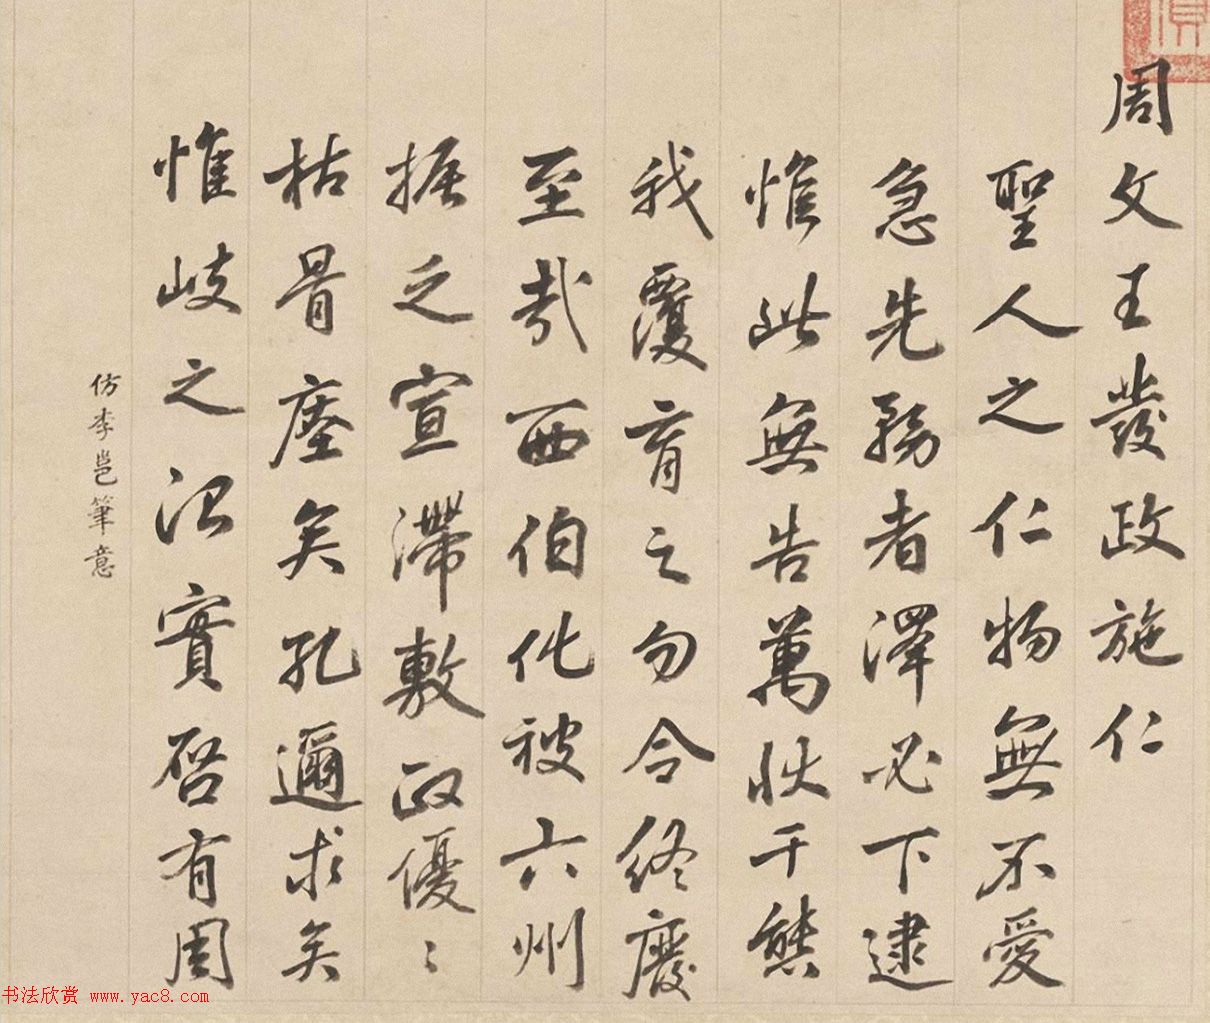 周文王發政施仁
聖人之仁物無不愛
急先務者澤必下逮
惟此無告萬狀千態
我覆育之勿令終廢
至哉西伯化被六州
振之宣滯敷政優〻
枯骨瘞矣孔邇求矣
惟岐之治實啓有周
仿李邕筆意
书法欣赏 www.yac8.com